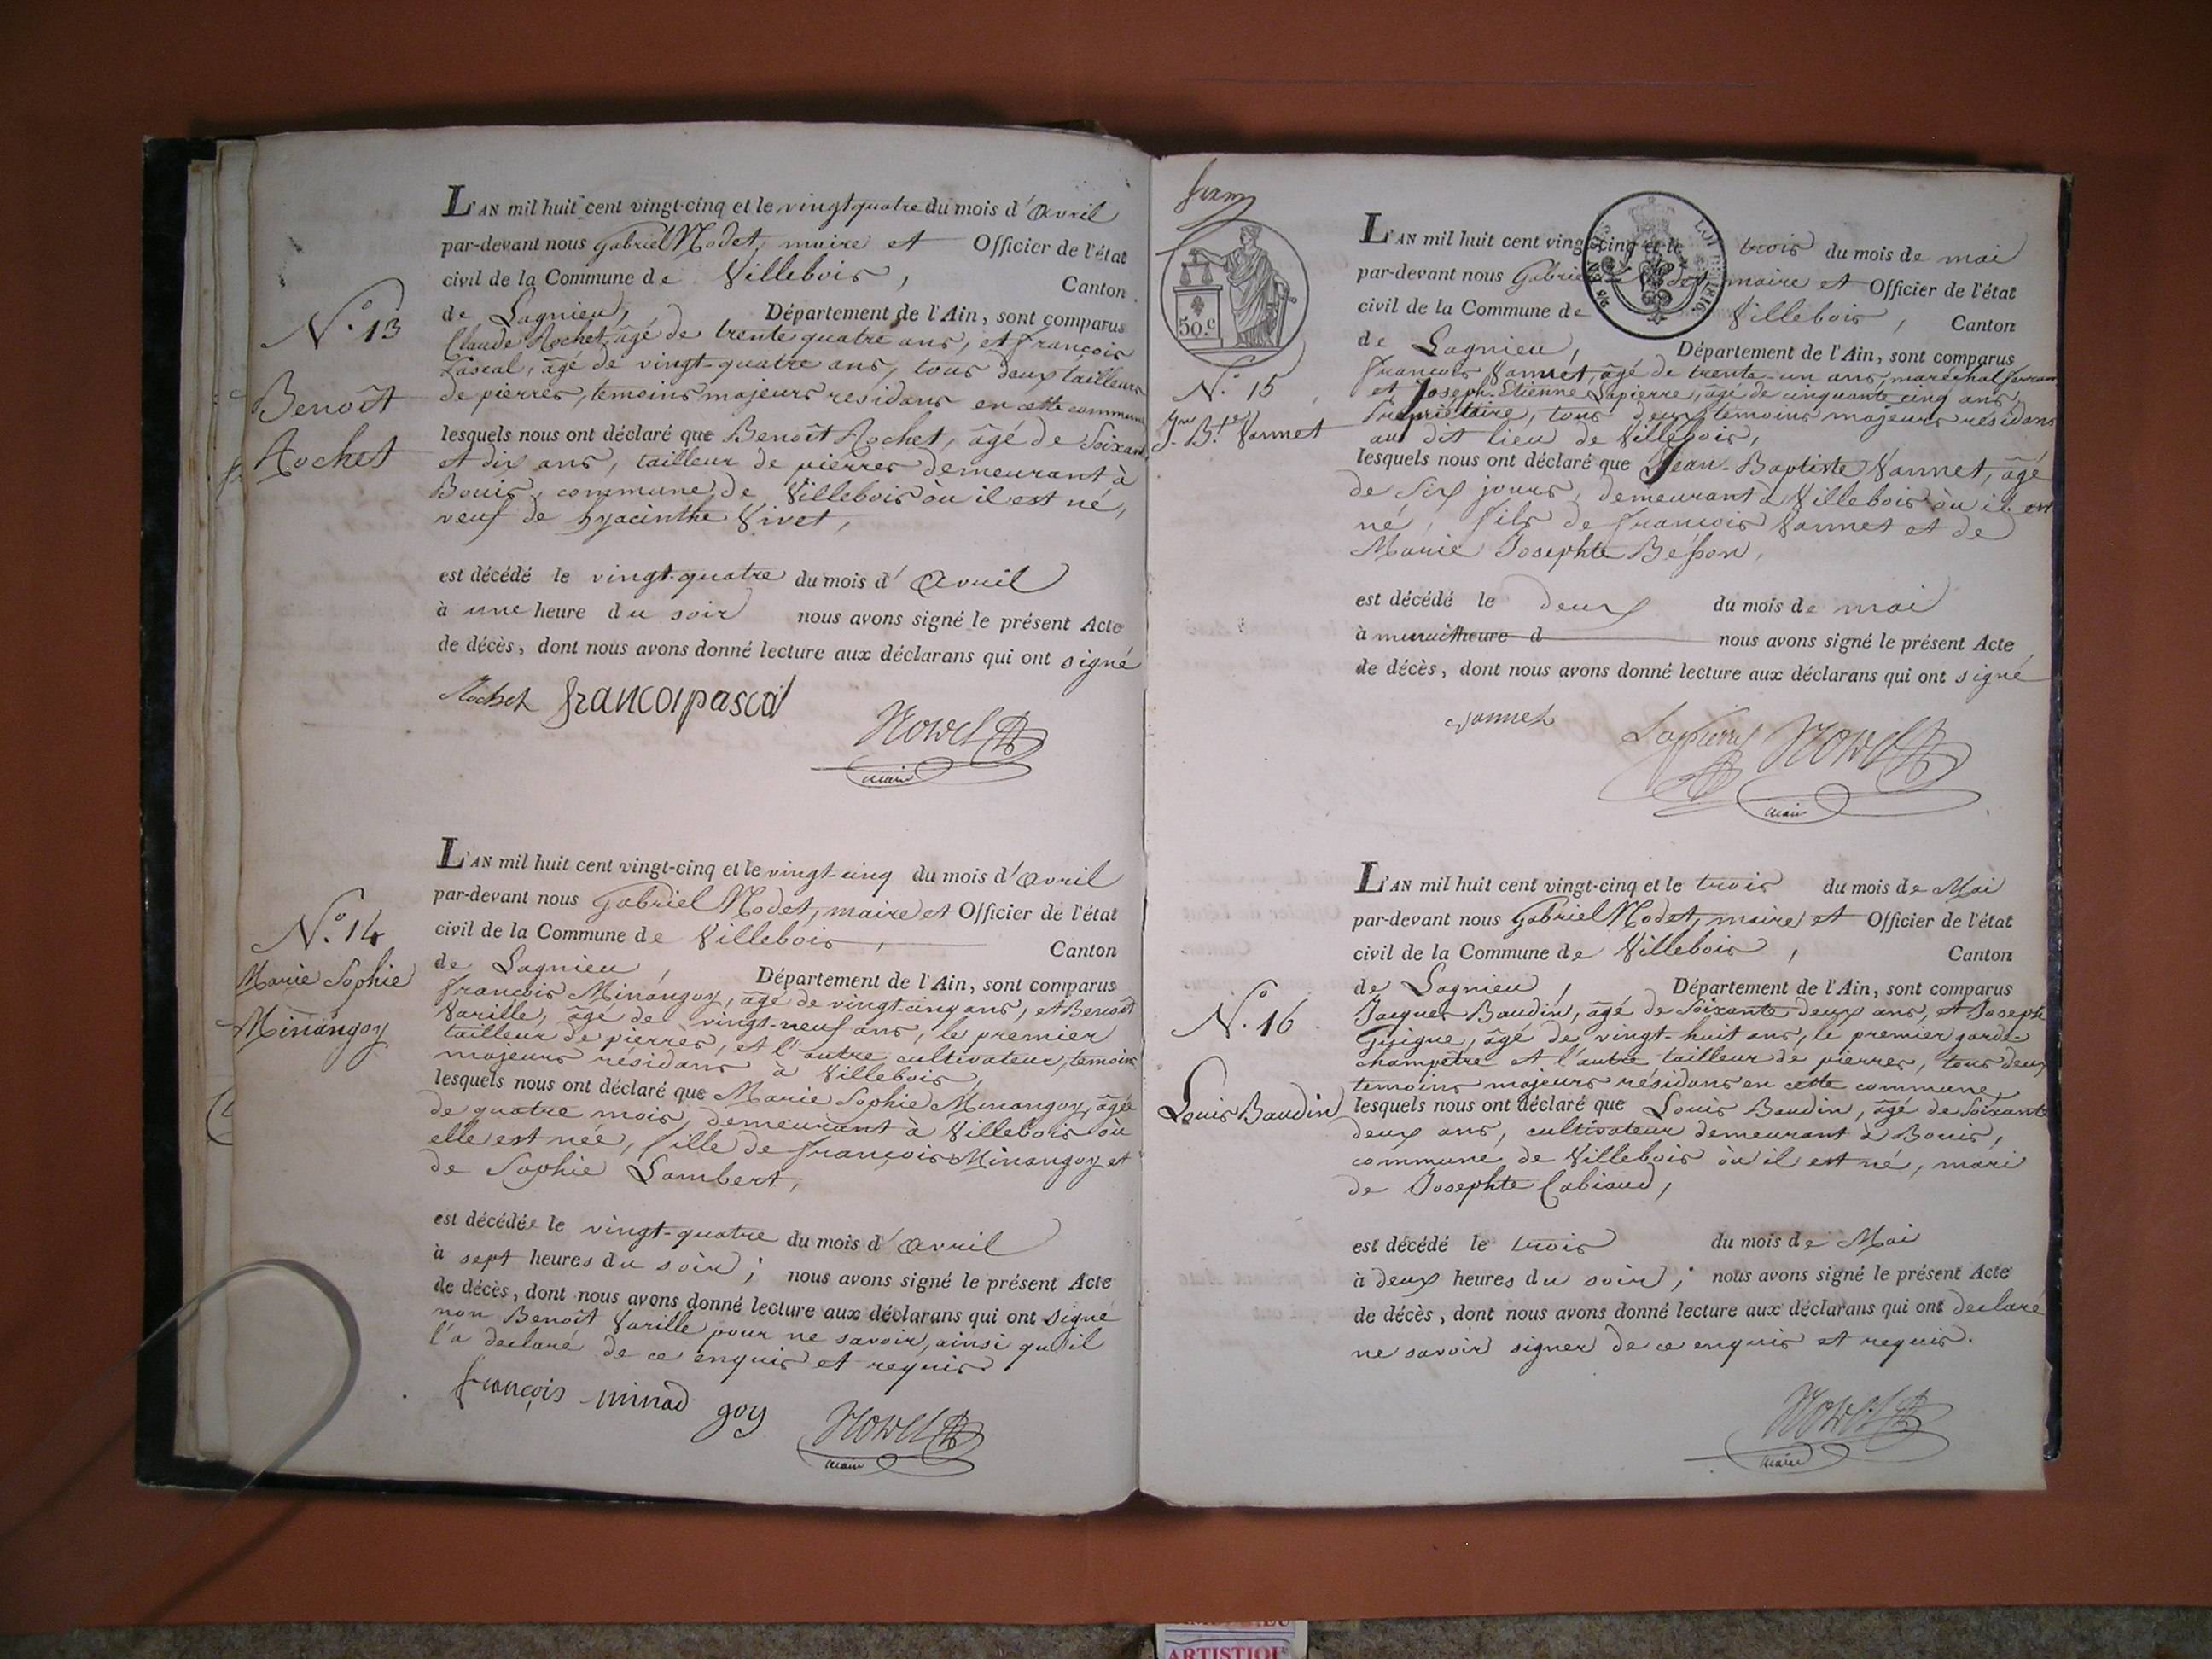 N.º 13
Benoît
Rochet
L'AN mil huit cent vingt-cinq et le vingt quatre du mois d'avril
par-devant nous Gabriel Nodet, maire et Officier de l'état
civil de la Commune de Villebois, Canton
de Lagnieu, Département de l'Ain, sont comparus
Claude Rochet, âgé de trente quatre ans, et françois
Pascal, âgé de vingt-quatre ans, tous deux tailleurs
de pierres, temoins majeurs résidans en cette commune
lesquels nous ont déclaré que Benoît Rochet, âgé de Soixante
et dix ans, tailleur de pierres demeurant à
Bouis, commune de Villebois où il est né,
veuf de hyacinthe Vivet,
est décédé le vingt-quatre du mois d'avril
à une heure du soir nous avons signé le présent Acte
de décès, dont nous avons donné lecture aux déclarans qui ont signé
Rochet francoipascal
maire
N.º 14
Marie Sophie
Minangoy
L'AN mil huit cent vingt-cinq et le vingt-cinq du mois d'avril
par-devant nous Gabriel Nodet, maire et Officier de l'état
civil de la Commune de Villebois, Canton
de Lagnieu, Département de l'Ain, sont comparus
françois Minangoy, âgé de vingt-cinq ans, et Benoît
Varille, âgé de vingt-neuf ans, le premier
tailleur de pierres, et l'autre cultivateur, temoins
majeurs résidans à Villebois,
lesquels nous ont déclaré que Marie Sophie Minangoy, âgée
de quatre mois, demeurant à Villebois où
elle est née, fille de françois Minangoy et
de Sophie Lambert,
est décédée le vingt-quatre du mois d'avril
à sept heures du soir; nous avons signé le présent Acte
de décès, dont nous avons donné lecture aux déclarans qui ont signé
non Benoît Varille pour ne savoir, ainsi qu'il
l'a declaré de ce enquis et requis
françois minad goy
maire
50.c
LOI DE 1816
N.º 15
Jn. Bte. Vannet
L'AN mil huit cent vingt-cinq et le trois du mois de mai
par-devant nous Gabriel Nodet maire et Officier de l'état
civil de la Commune de Villebois, Canton
de Lagnieu, Département de l'Ain, sont comparus
françois Vannet, âgé de trente-un ans, maréchal ferrant
et Joseph-Etienne Lapierre, âgé de cinquante cinq ans,
Propriétaire, tous deux temoins majeurs résidans
au dit lieu de Villebois,
lesquels nous ont déclaré que Jean-Baptiste Vannet, âgé
de Six jours, demeurant à Villebois où il est
né, fils de françois Vannet et de
Marie Josephte Besson,
est décédé le deux du mois de mai
à minuit heure d nous avons signé le présent Acte
de décès, dont nous avons donné lecture aux déclarans qui ont signé
vannet Lapierre
maire
N.º 16
Louis Baudin
L'AN mil huit cent vingt-cinq et le trois du mois de Mai
par-devant nous Gabriel Nodet, maire et Officier de l'état
civil de la Commune de Villebois, Canton
de Lagnieu, Département de l'Ain, sont comparus
Jacques Baudin, âgé de Soixante deux ans, et Joseph
Guigue, âgé de vingt-huit ans, le premier garde
champêtre et l'autre tailleur de pierres, tous deux
temoins majeurs résidans en cette commune
lesquels nous ont déclaré que Louis Baudin, âgé de Soixante
deux ans, cultivateur demeurant à Bouis,
commune de Villebois où il est né, mari
de Josephte Cabiaud,
est décédé le trois du mois de Mai
à deux heures du soir; nous avons signé le présent Acte
de décès, dont nous avons donné lecture aux déclarans qui ont declaré
ne savoir signer de ce enquis et requis.
maire
ARTISTIQU